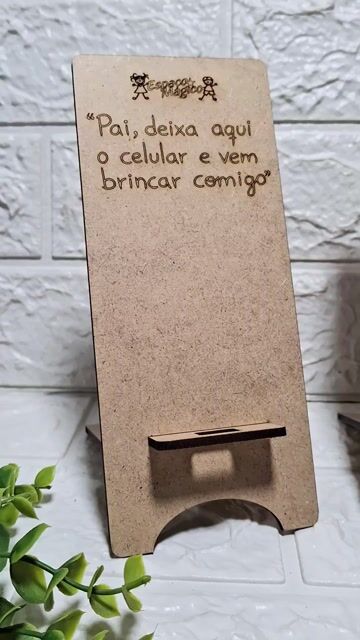 Espaço
Mágico
“Pai, deixa aqui
o celular e vem
brincar comigo”